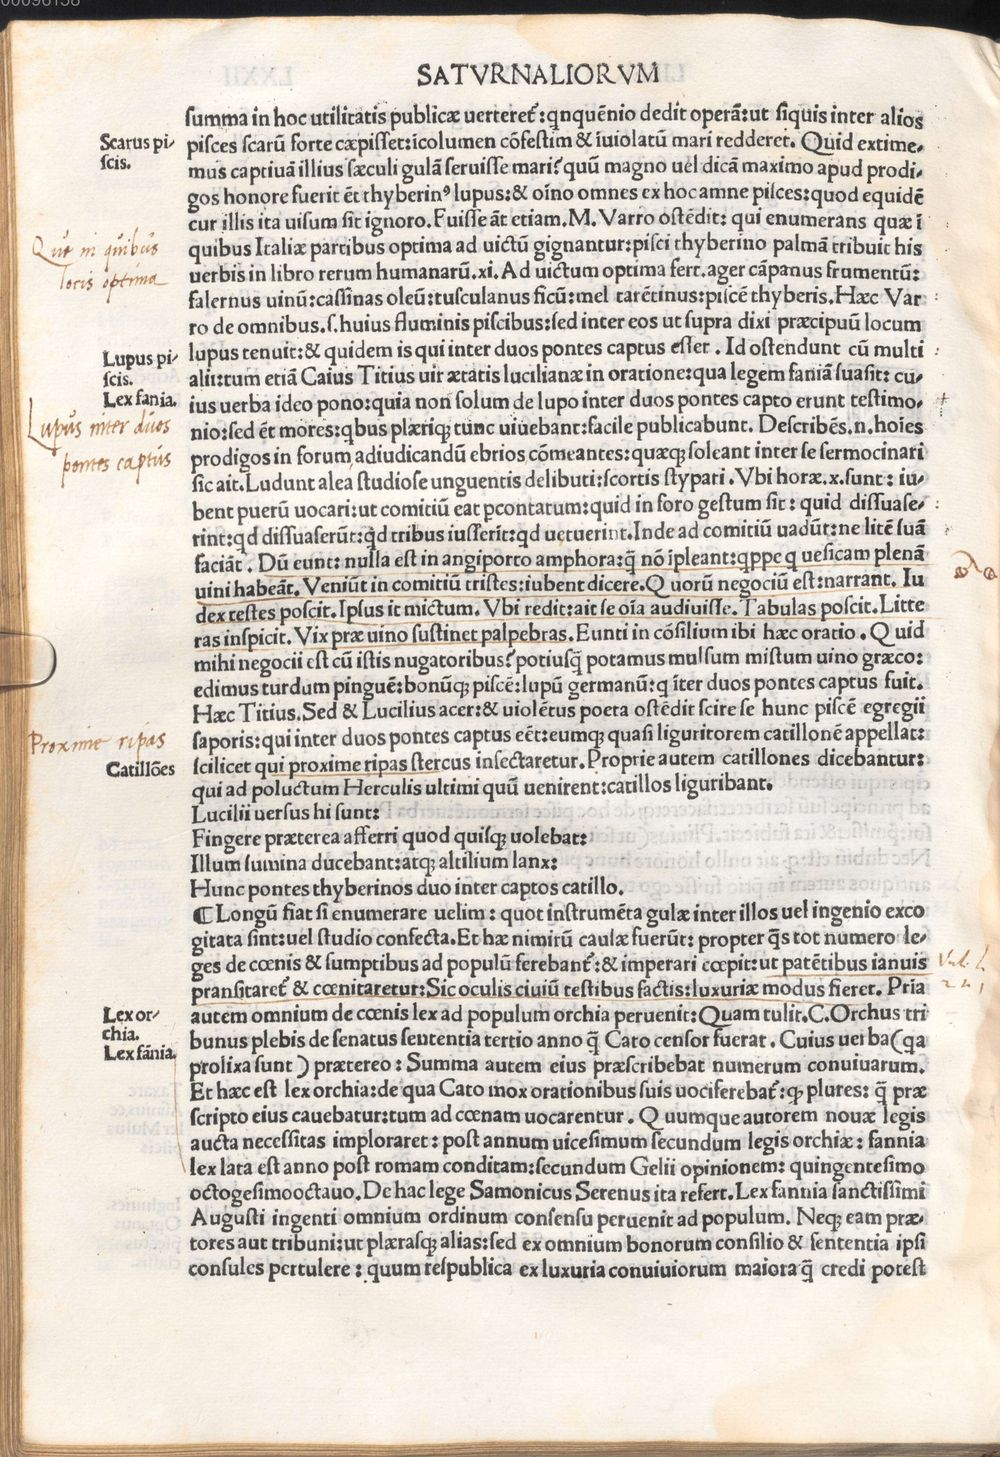 00096158
SATVRNALIORVM
summa in hoc utilitatis publicæ uerteret᷑:qnquēnio dedit operā:ut siquis inter alios
Scarus pi/
scis.
pisces scarū forte cæpisset:icolumen cōfestim & iuiolatū mari redderet. Quid extime/
mus captiuā illius sæculi gulā seruisse mari? quū magno uel dicā maximo apud prodi/
gos honore fuerit ēt thyberinꝰ lupus:& oīno omnes ex hoc amne pisces:quod equidē
cur illis ita uisum sit ignoro. Fuisse āt etiam. M. Varro ostēdit: qui enumerans quæ ī
Quę in quibus
locis optima
quibus Italiæ partibus optima ad uictū gignantur:pisci thyberino palmā tribuit his
uerbis in libro rerum humanarū.xi. Ad uictum optima fert.ager cāpanus frumentū:
falernus uinū:cassinas oleū:tusculanus ficū:mel tarētinus:piscē thyberis.Hæc Var
ro de omnibus.s.huius fluminis piscibus:sed inter eos ut supra dixi præcipuū locum
Lupus pi/
scis.
Lex fania.
lupus tenuit:& quidem is qui inter duos pontes captus esset . Id ostendunt cū multi
alii:tum etiā Caius Titius uir ætatis lucilianæ in oratione:qua legem faniā suasit: cu/
ius uerba ideo pono:quia non solum de lupo inter duos pontes capto erunt testimo/
Lupus inter duos
pontes captus
nio:sed ēt mores:qbus plæriqꝫ tunc uiuebant:facile publicabunt. Describēs.n.hoīes
prodigos in forum adiudicandū ebrios cōmeantes:quæqꝫ soleant inter se sermocinari
sic ait.Ludunt alea studiose unguentis delibuti:scortis stypati . Vbi horæ.x.sunt: iu/
bent puerū uocari:ut comitiū eat pcontatum:quid in foro gestum sit: quid dissuase/
rint:qd dissuaserūt:qd tribus iusserit:qd uetuerint.Inde ad comitiū uadūt:ne litē suā
faciāt . Dū eunt: nulla est in angiporto amphora:q̄ nō ipleant:qppe q uesicam plenā
uini habeāt. Veniūt in comitiū tristes:iubent dicere.Quorū negociū est:narrant. Iu
dex testes poscit.Ipsus it mictum. Vbi redit:ait se oīa audiuisse.Tabulas poscit.Litte
ras inspicit. Vix præ uino sustinet palpebras.Eunti in cōsilium ibi hæc oratio . Quid
mihi negocii est cū istis nugatoribus? potiusq̄ potamus mulsum mistum uino græco:
edimus turdum pinguē:bonūqꝫ piscē:lupū germanū:q īter duos pontes captus fuit.
Hæc Titius.Sed & Lucilius acer:& uiolētus poeta ostēdit scire se hunc piscē egregii
Proxime ripas
Catillōes
saporis:qui inter duos pontes captus eēt:eumqꝫ quasi liguritorem catillonē appellat:
scilicet qui proxime ripas stercus insectaretur.Proprie autem catillones dicebantur:
qui ad poluctum Herculis ultimi quū uenirent:catillos liguribant.
Lucilii uersus hi sunt:
Fingere præterea afferri quod quisqꝫ uolebat:
Illum sumina ducebant:atqꝫ altilium lanx:
Hunc pontes thyberinos duo inter captos catillo.
¶ Longū fiat si enumerare uelim: quot instrumēta gulæ inter illos uel ingenio exco
gitata sint:uel studio confecta.Et hæ nimirū causæ fuerūt: propter q̄s tot numero le/
ges de cœnis & sumptibus ad populū ferebant᷑:& imperari cœpit:ut patētibus ianuis
pransitaret᷑ & cœnitaretur:Sic oculis ciuiū testibus factis:luxuriæ modus fieret. Pria
Lex or/
chia.
Lex fānia.
autem omnium de cœnis lex ad populum orchia peruenit:Quam tulit.C.Orchus tri
bunus plebis de senatus sententia tertio anno q̄ Cato censor fuerat . Cuius uerba(qa
prolixa sunt ) prætereo : Summa autem eius præscribebat numerum conuiuarum.
Et hæc est lex orchia:de qua Cato mox orationibus suis uociferebat᷑:qꝫ plures: q̄ præ
scripto eius cauebatur:tum ad cœnam uocarentur . Quumque autorem nouæ legis
aucta necessitas imploraret: post annum uicesimum secundum legis orchiæ: fannia
lex lata est anno post romam conditam:secundum Gelii opinionem: quingentesimo
octogesimooctauo. De hac lege Samonicus Serenus ita refert.Lex fannia sanctissimi
Augusti ingenti omnium ordinum consensu peruenit ad populum. Neqꝫ eam præ/
tores aut tribuni:ut plærasqꝫ alias:sed ex omnium bonorum consilio & sententia ipsi
consules pertulere : quum respublica ex luxuria conuiuiorum maiora q̄ credi potest